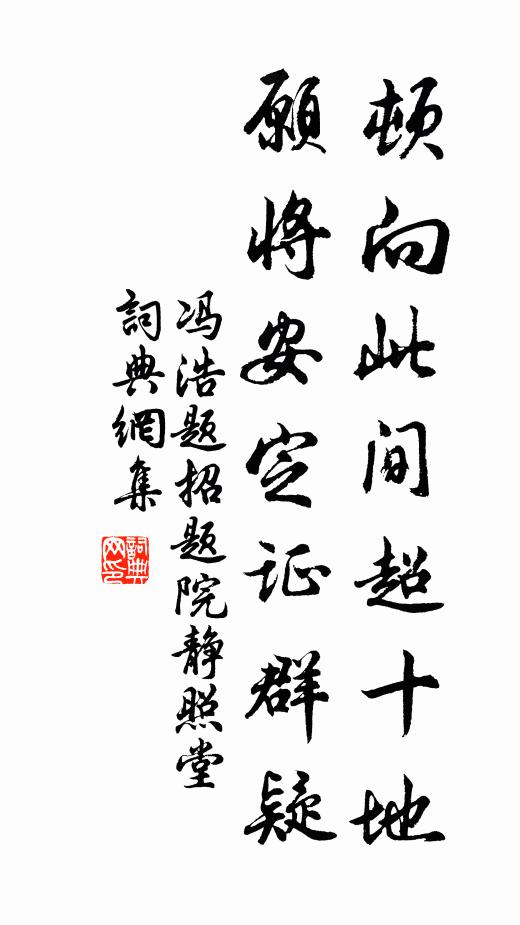 顿向此间超十地
願将安定证群疑
冯浩题招题院静照堂
詞典網集
詞典网印